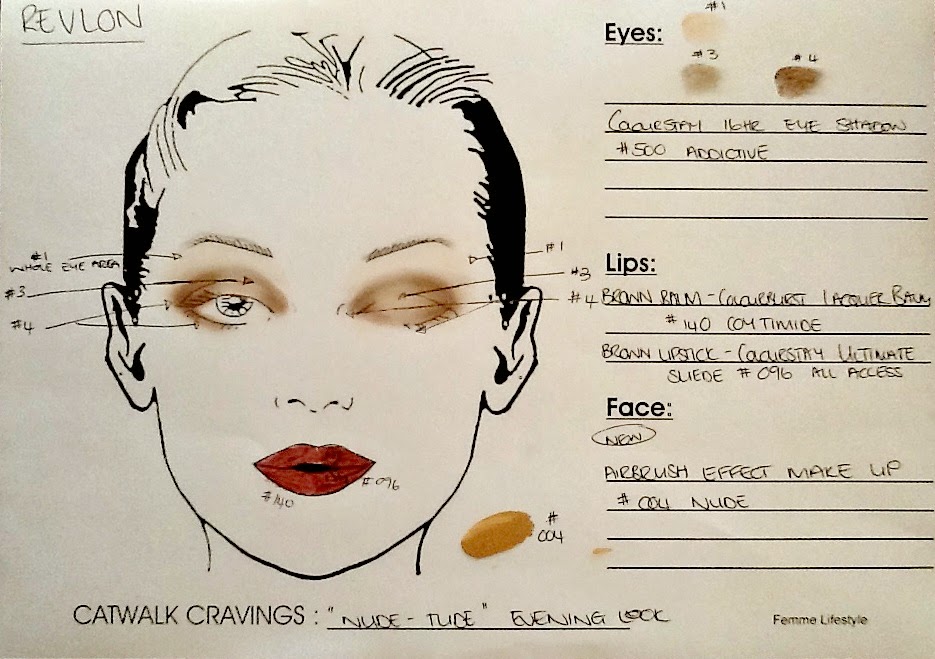 REVLON
#1
Eyes:
#3
#4
COLOURSTAY 16HR EYE SHADOW
#500 ADDICTIVE
#1
WHOLE EYE AREA
#3
#4
#1
#3
#4
Lips:
BROWN BALM - COLOURBURST LACQUER BALM
#140 COY TIMIDE
BROWN LIPSTICK - COLOURSTAY ULTIMATE
SUEDE #096 ALL ACCESS
Face:
NEW
AIRBRUSH EFFECT MAKE UP
# 004 NUDE
#140
#096
#
004
CATWALK CRAVINGS : "NUDE - TUDE" EVENING LOOK
Femme Lifestyle